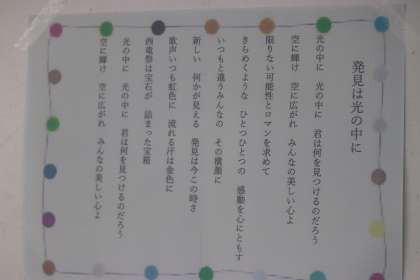 発見は光の中に
光の中に　光の中に　君は何を見つけるのだろう
空に輝け　空に広がれ　みんなの美しい心よ
限りない可能性とロマンを求めて
きらめくような　ひとつひとつの　感動を心にともす
いつもと違うみんなの　その横顔に
新しい　何かが見える　発見は今この時さ
歌声いつも虹色に　流れる汗は金色に
西竜祭は宝石が　詰まった宝箱
光の中に　光の中に　君は何を見つけるのだろう
空に輝け　空に広がれ　みんなの美しい心よ